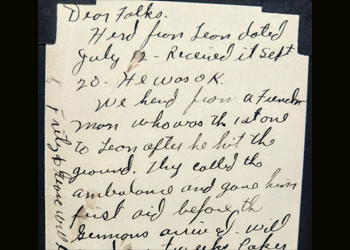 Dear Folks.
Herd from Leon dated
July 12 - Received it Sept
20 - He was OK.
We herd from a Frenchman
man who was the 1st one
to Leon after he hit the
ground. They called the
ambulance and gave him
first aid before the
Germans arrived. Will
Fritz &